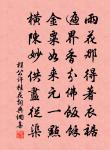 雨花那得著衣裾
遍界香分佛飯餘
金粟如來元一點
橫陳妙供盡從渠
程公許桂花詞典網